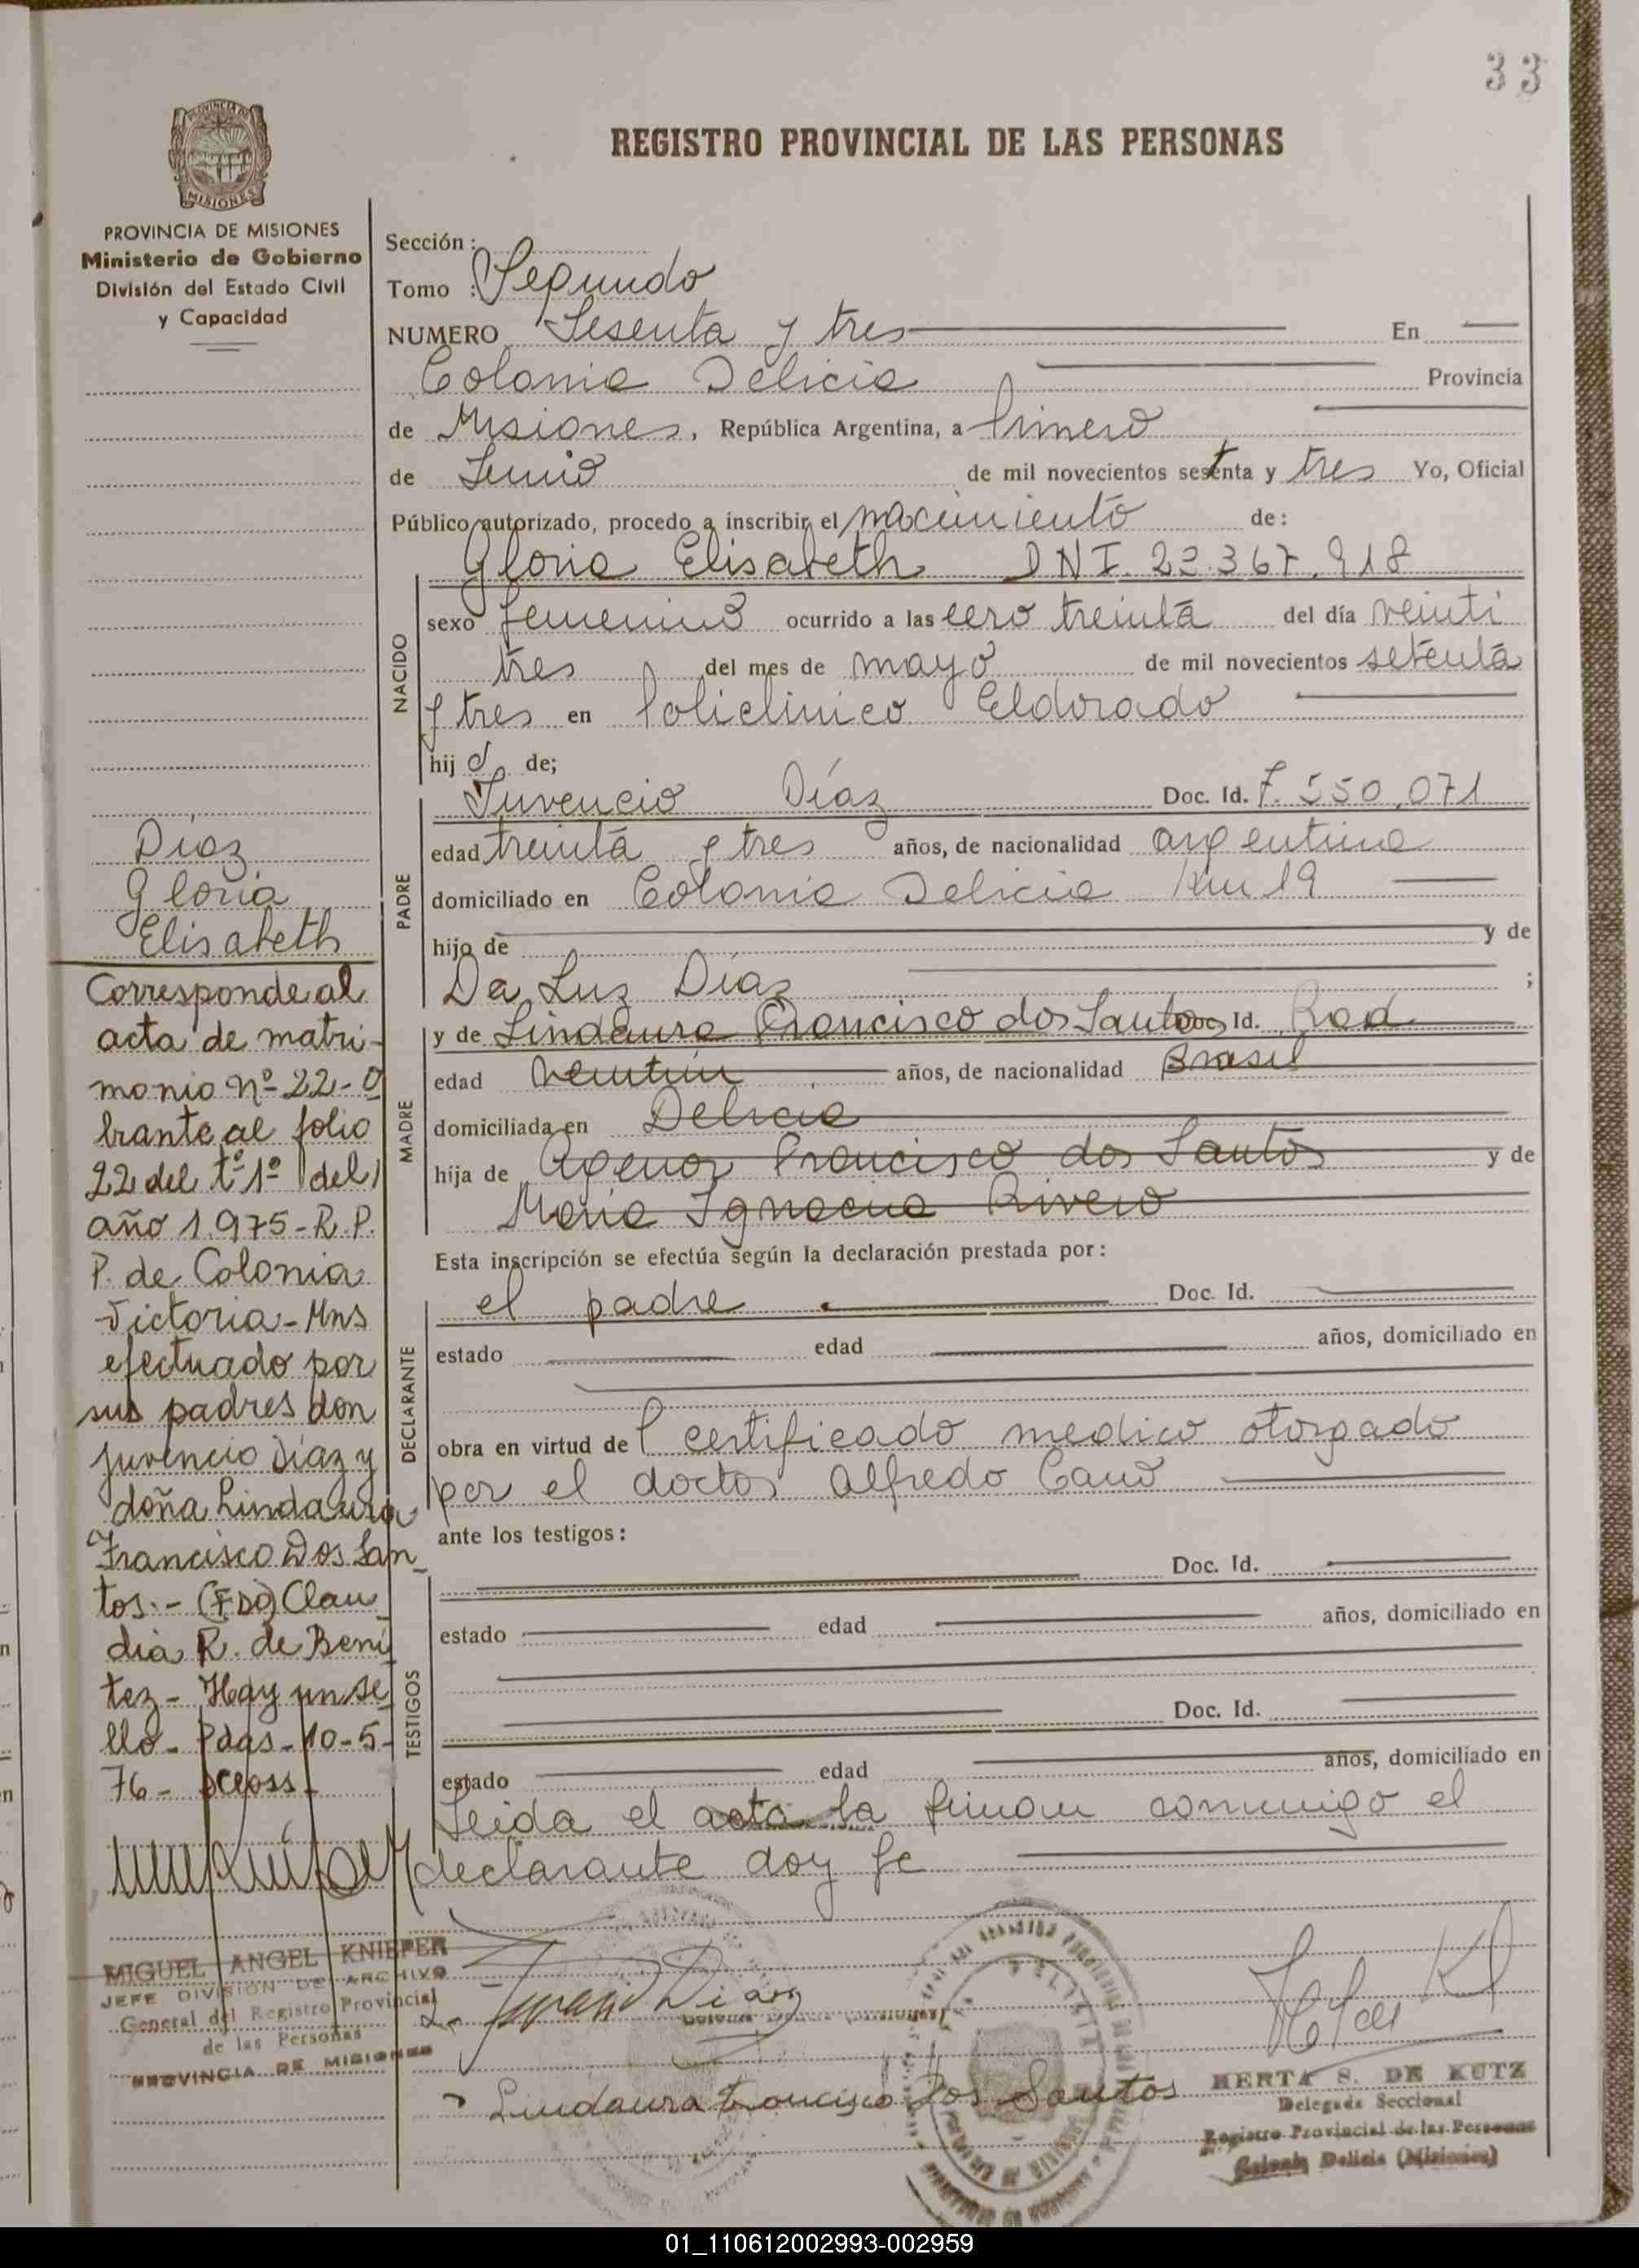 33
REGISTRO PROVINCIAL DE LAS PERSONAS
PROVINCIA DE MISIONES
MISIONES
PROVINCIA DE MISIONES
Ministerio de Gobierno
División del Estado Civil
y Capacidad
Díaz
Gloria
Elisabeth
Corresponde al
acta de matri-
monio nº 22-O
brante al folio
22 del tº 1º del
año 1.975-R.P.
P. de Colonia
Victoria-Mns
efectuado por
sus padres don
Juvencio Díaz y
doña Lindaura
Francisco Dos San
tos.- (Fdo) Clau
dia R. de Bení
tez- Hay un se
llo- Pdas-10-5-
76-
MIGUEL ANGEL KNIEPER
JEFE DIVISION DE ARCHIVO
General del Registro Provincial
de las Personas
PROVINCIA DE MISIONES
Sección :
Tomo : Segundo
NUMERO Sesenta y tres En
Colonia Delicia Provincia
de Misiones, República Argentina, a Primero
de Junio de mil novecientos setenta y tres Yo, Oficial
Público autorizado, procedo a inscribir el nacimiento de:
Gloria Elisabeth DNI. 23.367.918
NACIDO
sexo femenino ocurrido a las cero treinta del día veinti
tres del mes de mayo de mil novecientos setenta
y tres en Policlinico Eldorado
hij a de;
PADRE
Juvencio Díaz Doc. Id. 7.550.071
edad treinta y tres años, de nacionalidad argentina
domiciliado en Colonia Delicia Km 19
hijo de y de
Da Luz Díaz ;
MADRE
y de Lindaura Francisco dos Santos Doc. Id. Rad
edad veintiun años, de nacionalidad Brasil
domiciliada en Delicia
hija de Agenor Francisco dos Santos y de
Maria Ignacia Rivero
Esta inscripción se efectúa según la declaración prestada por:
DECLARANTE
el padre Doc. Id.
estado edad años, domiciliado en
obra en virtud del certificado medico otorgado
por el doctor Alfredo Cano
ante los testigos:
TESTIGOS
Doc. Id.
estado edad años, domiciliado en
Doc. Id.
estado edad años, domiciliado en
Leida el acta la firman conmigo el
declarante doy fe
Díaz
Lindaura Francisco Dos Santos
HERTA S. DE KUTZ
Delegada Seccional
Registro Provincial de las Personas
Colonia Delicia (Misiones)
01_110612002993-002959